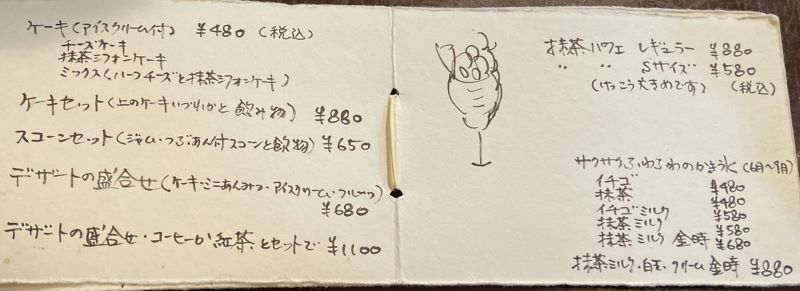 ケーキ(アイスクリーム付) ¥480 (税込)
チーズケーキ
抹茶シフォンケーキ
ミックス(ハーフチーズと抹茶シフォンケーキ)
ケーキセット(上のケーキいづれかと飲み物) ¥880
スコーンセット(ジャム・つぶあん付スコーンと飲物) ¥650
デザートの盛合せ(ケーキ・ミニあんみつ・アイスクリーム・フルーツ)
¥680
デザートの盛合せ・コーヒーか紅茶とセットで ¥1100
抹茶パフェ レギュラー ¥880
〃 〃 Sサイズ ¥580
(けっこう大きめです) (税込)
サクサクふわふわのかき氷(6月〜9月)
イチゴ ¥480
抹茶 ¥480
イチゴミルク ¥580
抹茶ミルク ¥580
抹茶ミルク金時 ¥680
抹茶ミルク・白玉・クリーム金時 ¥880